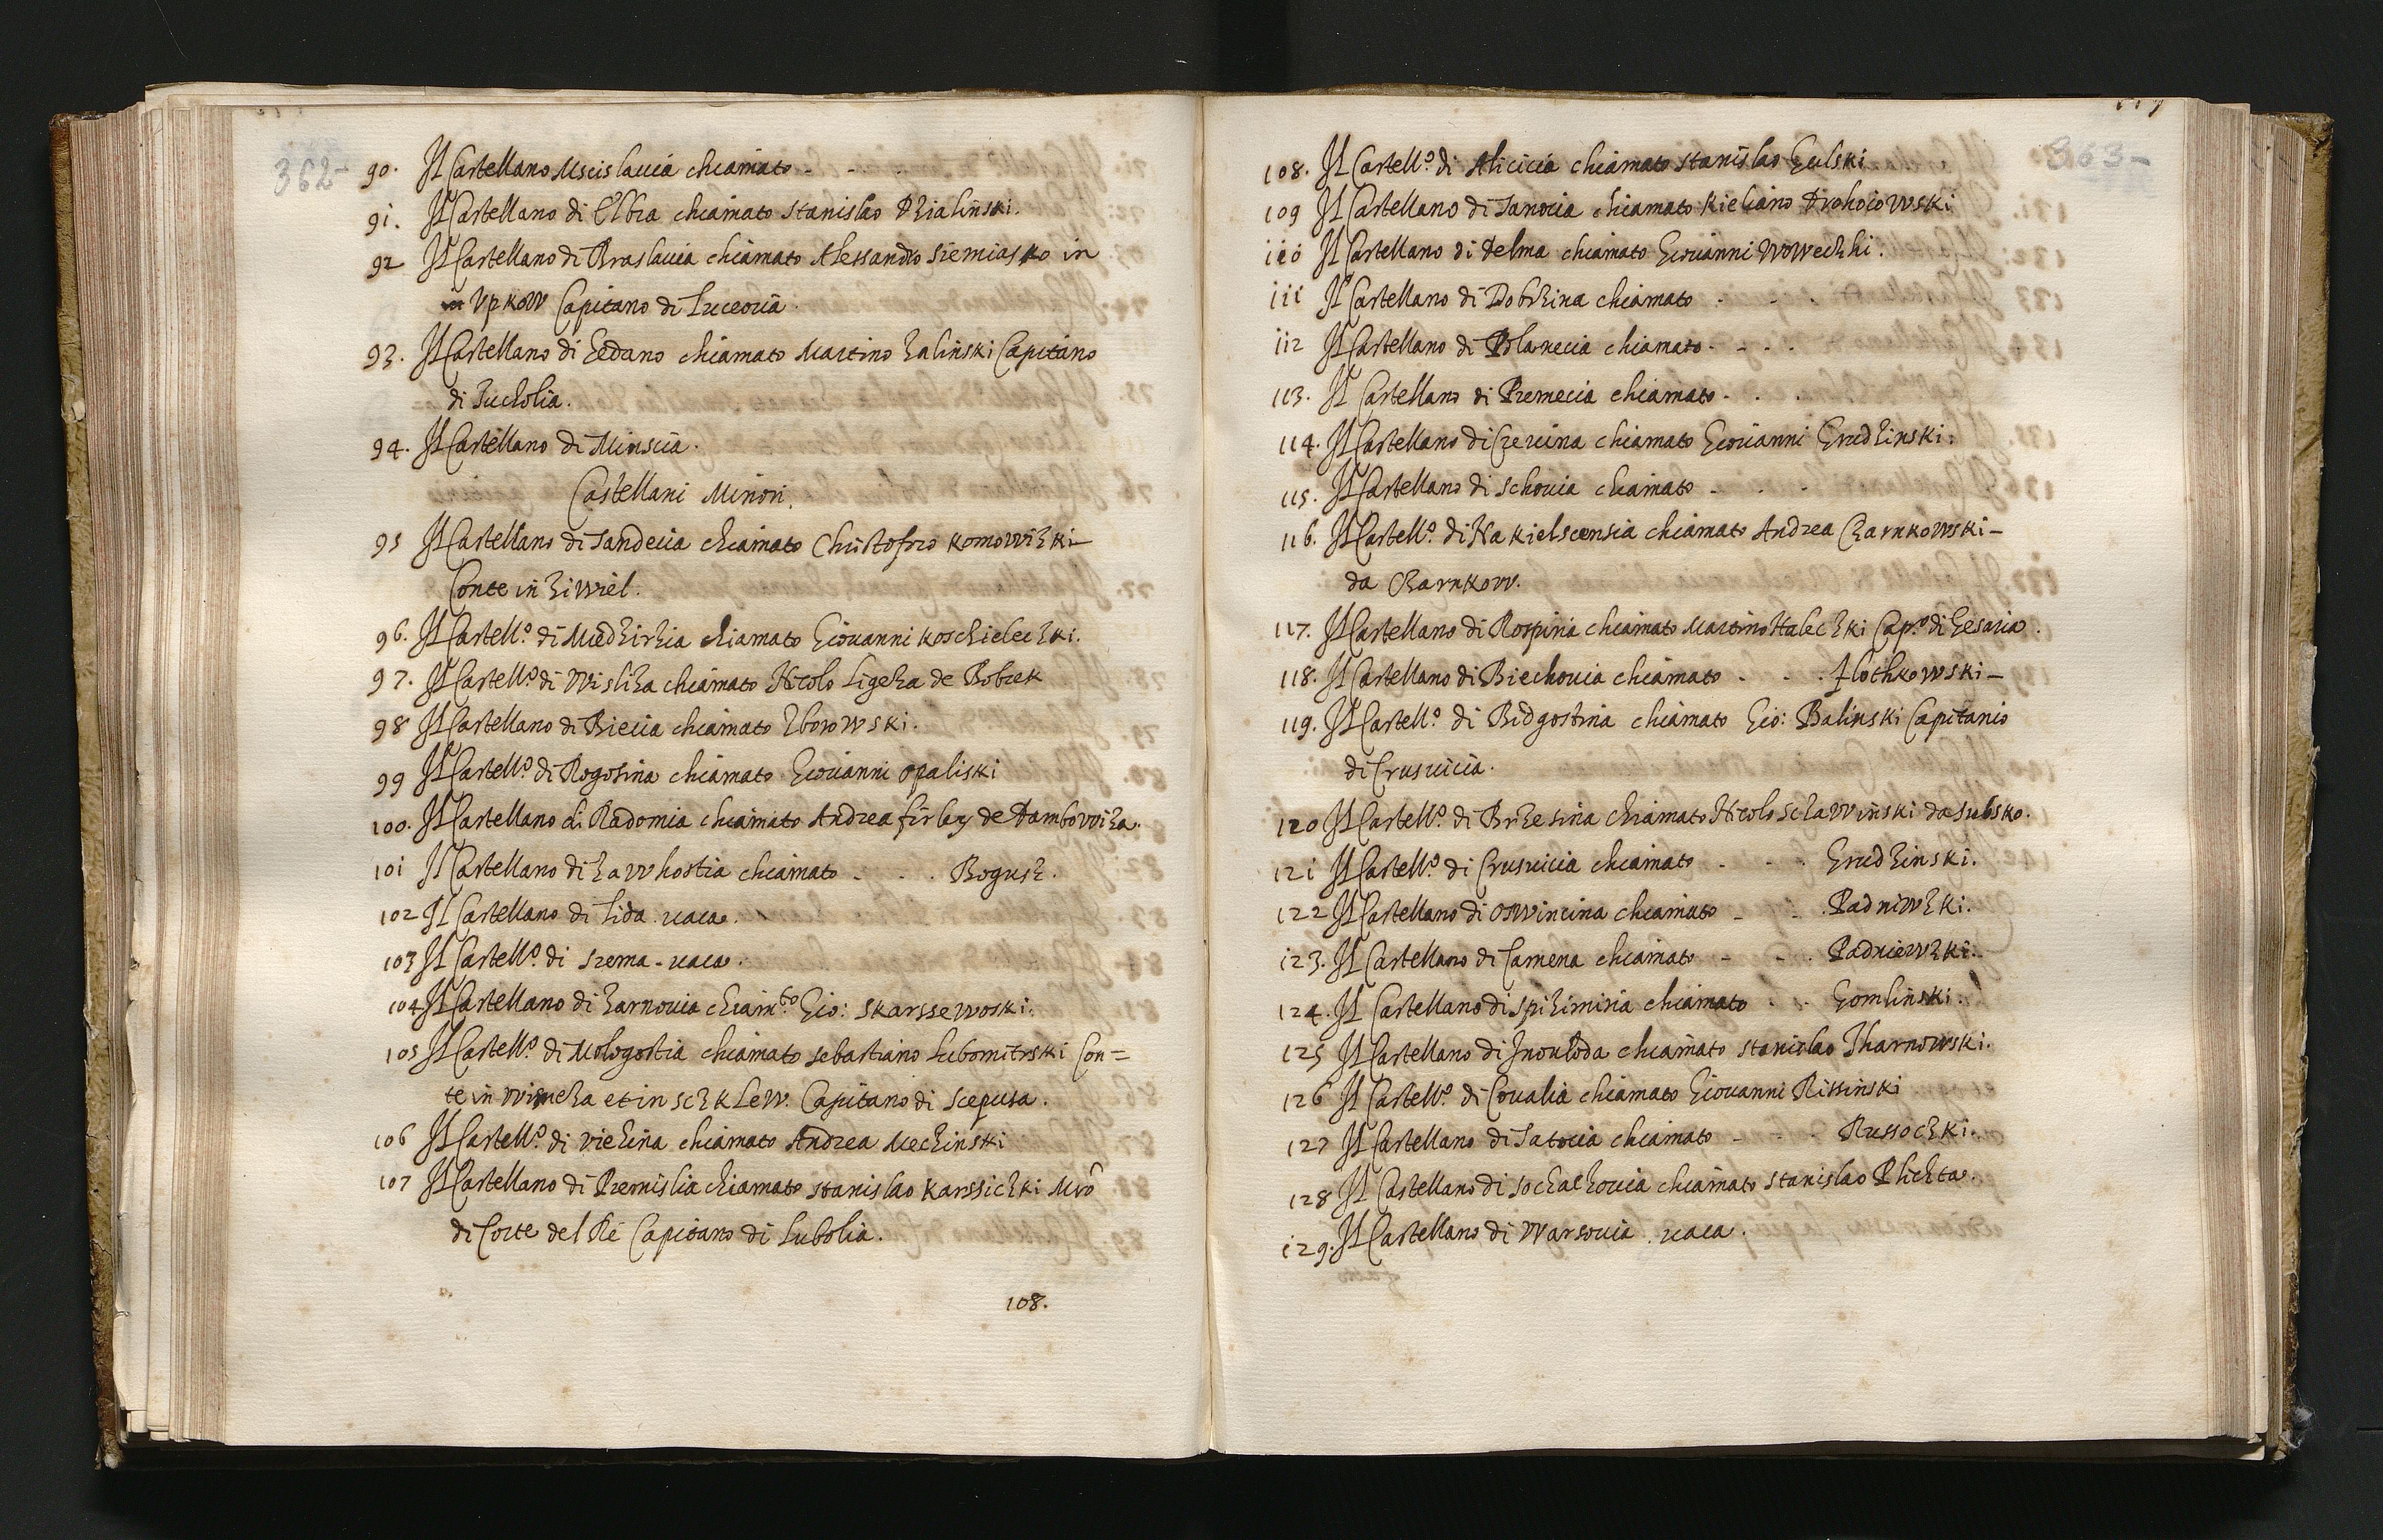 362-
90. Il Castellano Mscislauia chiamato - - -
91. Il Castellano di Elbia chiamato Stanislao Dzialinski.
92 Il Castellano di Braslauia chiamato Alessandro Siemiasko in
Vpkow Capitano di Luceoria.
93. Il Castellano di Gedano chiamato Martino Zalinski Capitano
di Tucholia.
94. Il Castellano di Minscia.
Castellani Minori.
95 Il Castellano di Sandecia chiamato Christoforo Komowizki-
Conte in Ziwiel.
96. Il Castell.o di Miedzirzia chiamato Giouanni Koschielezki.
97. Il Castell.o di Wisliza chiamato Nicolo Ligeza de Bobrek
98 Il Castellano di Biecia chiamato Zborowski.
99 Il Castell.o di Rogosina chiamato Giouanni Opaliski
100. Il Castellano di Radomia chiamato Andrea firley de Dambowiza.
101 Il Castellano di Zawhostia chiamato - - . Bogusz.
102 Il Castellano di Lida. uaca.
103 Il Castell.o di Srema - uaca.
104 Il Castellano di Zarnouia chiam.to Gio: Skarssewoski.
105 Il Castell.o di Mologostia chiamato Sebastiano Lubomitrski Con=
te in Wisneza et in Schklew. Capitano di Scepusa.
106 Il Castell.o di Vielina chiamato Andrea Mezinski
107 Il Castellano di Premislia chiamato Stanislao Karssizki Mro
di Corte del Rè Capitano di Lubolia.
108.
363-
108. Il Castell.o di Alicicia chiamato Stanislao Gulski
109 Il Castellano di Sanocia chiamato Kieliano Drohoiowski
110 Il Castellano di Delma chiamato Giouanni Wowezhi.
111 Il Castellano di Dobrzina chiamato - - .
112 Il Castellano di Polanecia chiamato - - . .
113. Il Castellano di Premecia chiamato - . .
114. Il Castellano di Crevina chiamato Giouanni Grudzinski.
115. Il Castellano di Schouia chiamato - . .
116. Il Castell.o di Nakielscensia chiamato Andrea Charnkowski-
da Charnkow.
117. Il Castellano di Rospiria chiamato Martino Stalezki Cap.o di Gesaria.
118. Il Castellano di Biechouia chiamato . - . Zlothkowski-
119. Il Castell.o di Bidgostina chiamato Gio: Balinski Capitanio
di Crusuicia.
120 Il Castell.o di Brzesina chiamato Nicolo Szawinski da Subsko.
121 Il Castell.o di Crusuicia chiamato - - . Grudzinski.
122 Il Castellano di Oswincina chiamato - - . Padniwzki.
123. Il Castellano di Camena chiamato - - . Padniewzki.
124. Il Castellano di Spiziminia chiamato . . Gomlinski.
125 Il Castellano di Jnouloda chiamato Stanislao Tharnowski.
126 Il Castell.o di Coualia chiamato Giouanni Rissinski
127 Il Castellano di Satocia chiamato - - . Russozki.
128 Il Castellano di Sochalzouia chiamato Stanislao Plichta.
129. Il Castellano di Warsouia. uaca.